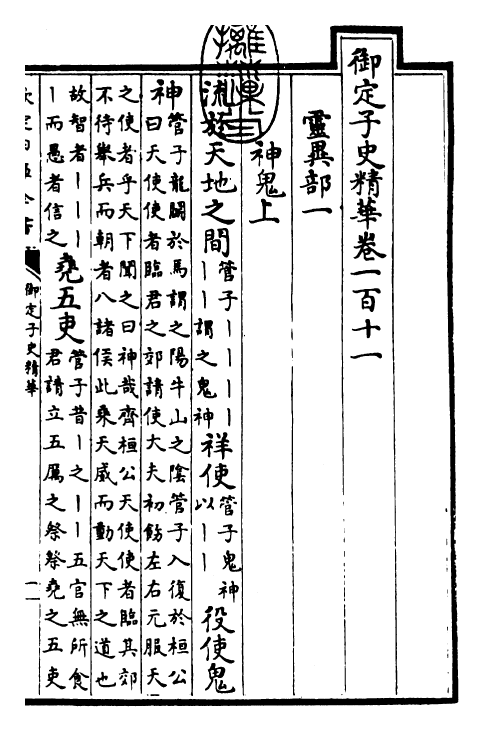 御定子史精華卷一百十一
靈異部一
神鬼上
流於天地之間管子丨丨丨丨丨丨謂之鬼神祥使管子鬼神以丨丨役使鬼
神管子龍鬬於馬謂之陽牛山之陰管子入復於桓公
曰天使使者臨君之郊請使大夫初飭左右元服天
之使者乎天下聞之曰神哉齊桓公天使使者臨其郊
不待舉兵而朝者八諸侯此乘天威而動天下之道也
故智者丨丨丨丨而愚者信之堯五吏管子昔丨之丨丨五官無所食君請立五厲之祭祭堯之五吏
御定子史精華
一